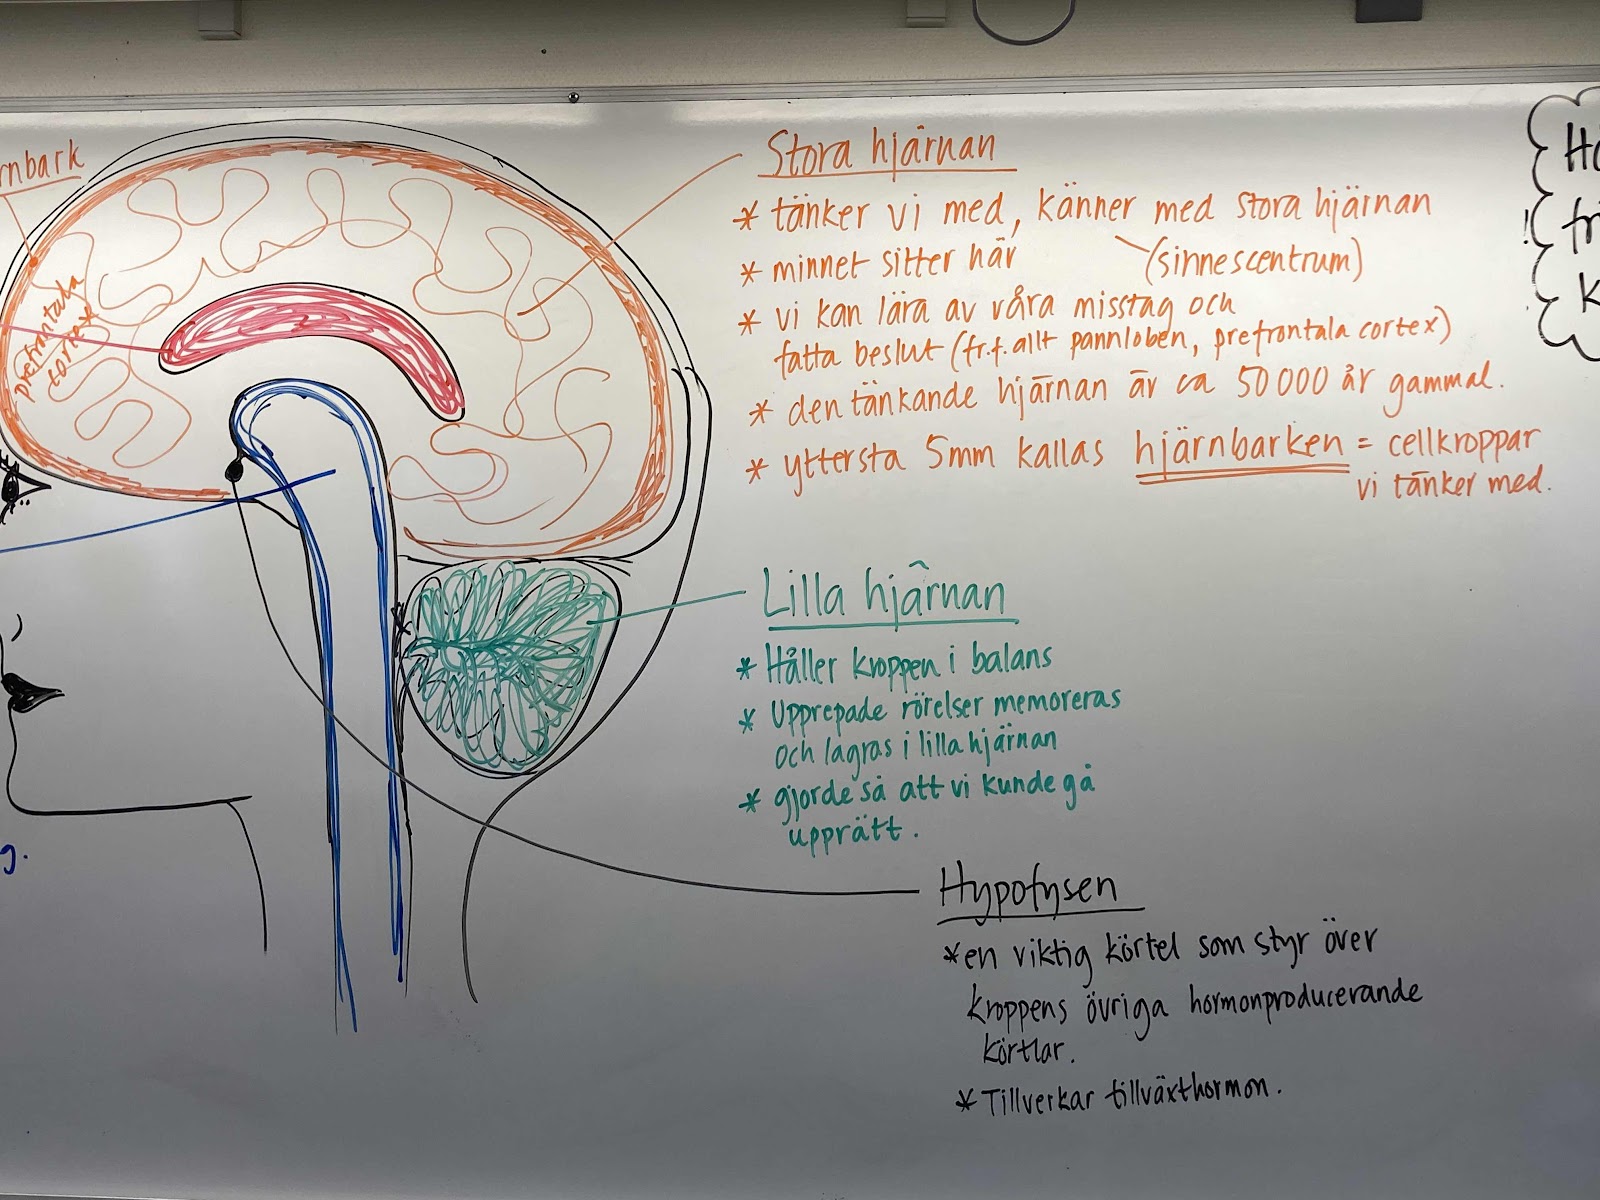 rnbark
prefrontala
cortex
Stora hjärnan
* tänker vi med, känner med stora hjärnan
(sinnescentrum)
* minnet sitter här
* vi kan lära av våra misstag och
fatta beslut (fr.f.allt pannloben, prefrontala cortex)
* den tänkande hjärnan är ca 50 000 år gammal.
* yttersta 5mm kallas hjärnbarken = cellkroppar
vi tänker med.
Lilla hjärnan
* Håller kroppen i balans
* Upprepade rörelser memoreras
och lagras i lilla hjärnan
* gjorde så att vi kunde gå
upprätt.
Hypofysen
* en viktig körtel som styr över
kroppens övriga hormonproducerande
körtlar.
* Tillverkar tillväxthormon.
g.
fr
K